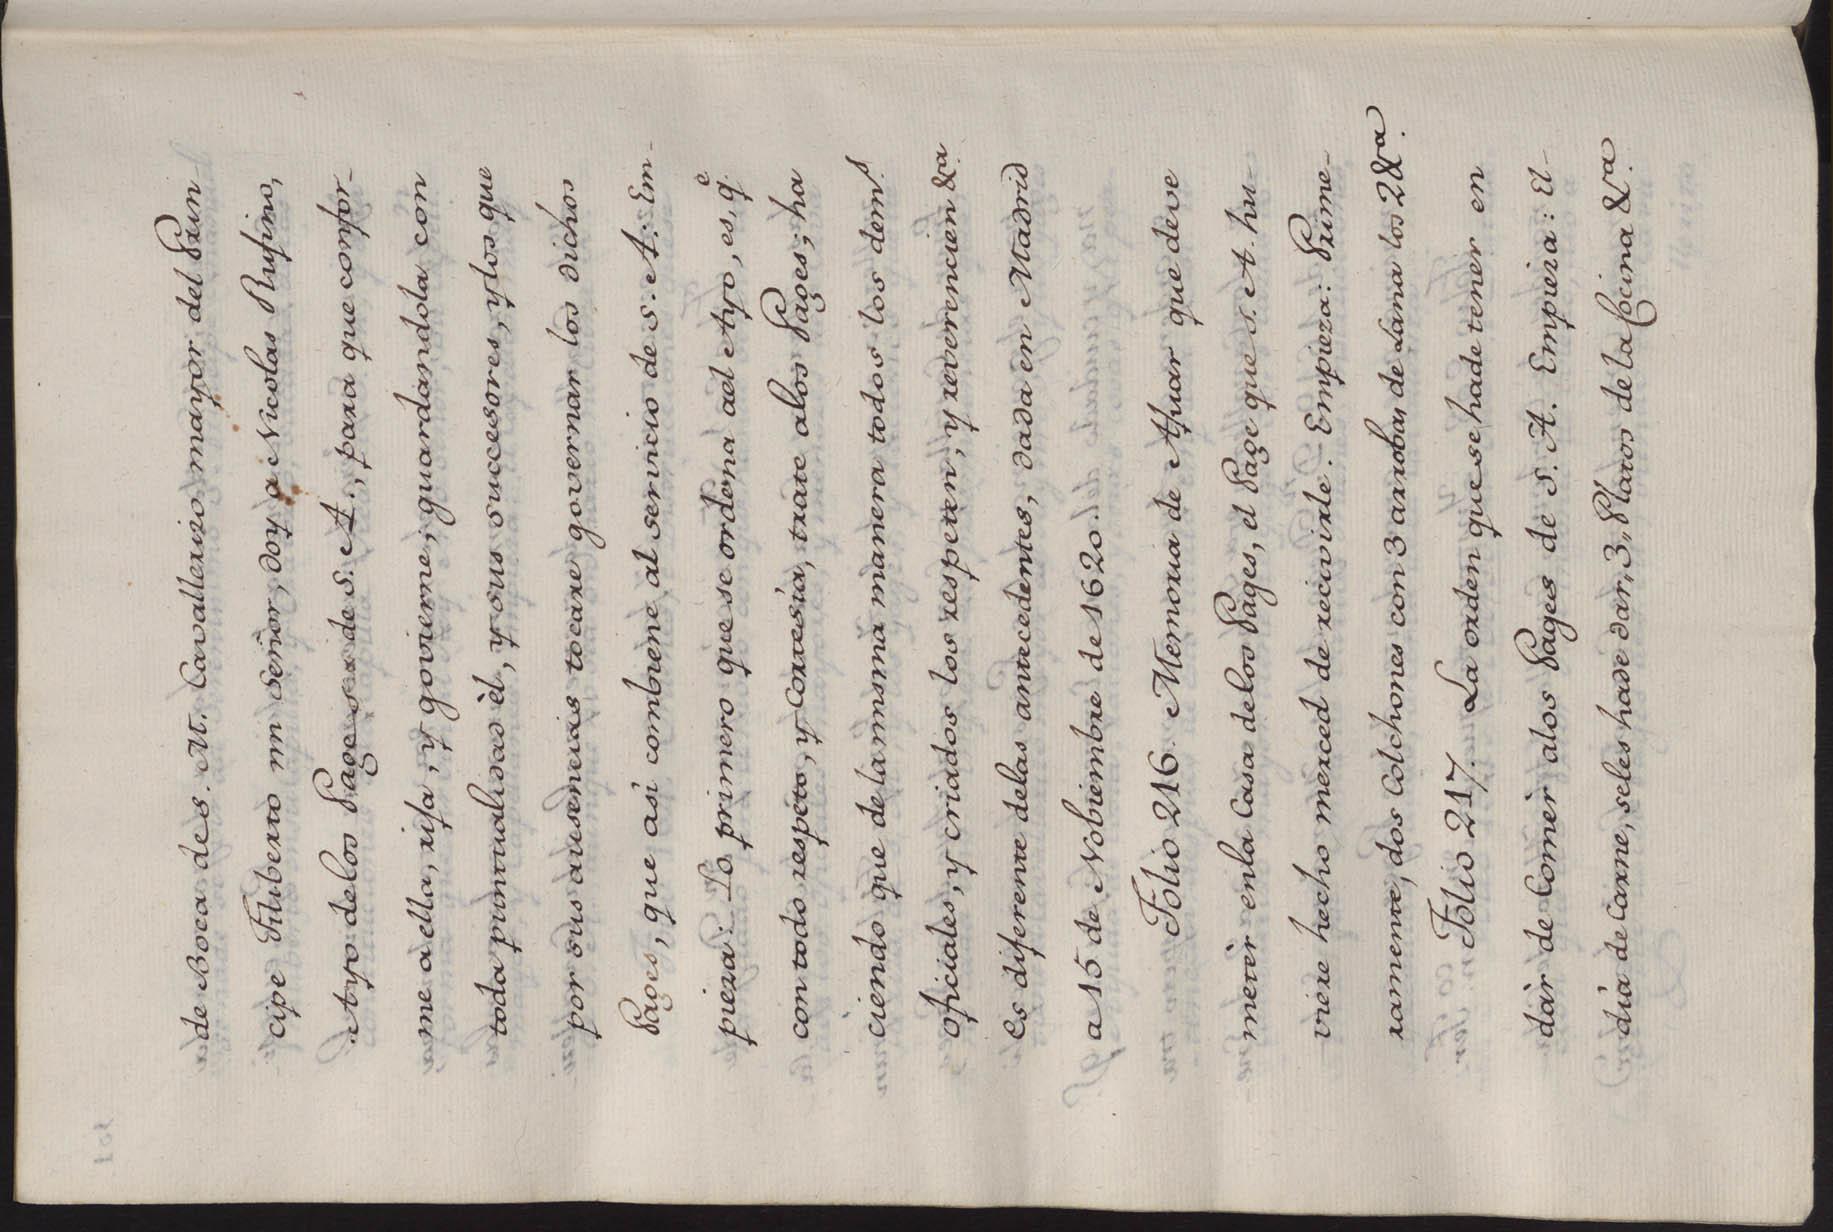 de Boca de S. M. Cavallerizo mayor del Prin-
cipe Filiberto mi señor, doy a Nicolas Rufino,
Ayo delos Pages de S. A., para que confor-
me a ella, rija, y govierne; guardandola con
toda puntualidad èl, y sus successores, y los que
por sus ausencias tocare governar los dichos
Pages, que asi combiene al servicio de S. A.: Em-
pieza: Lo primero que se ordena ael Ayo, es, q.e
con todo respeto, y Cortesia, trate alos Pages; ha
ciendo que dela misma manera todos los dem.s
oficiales, y criados los respeten, y reverencien &a.
es diferente delas antecedentes, dada en Madrid
a 15 de Nobiembre de 1620.
Folio 216. Memoria de Ajuar que deve
metèr enla Casa delos Pages, el Page que S. A. hu-
viere hecho merced de recivirle. Empieza: Prime-
ramente, dos Colchones con 3 arrobas de Lana los 2 &a.
Folio 217. La orden que se hade tener en
dàr de Comèr alos Pages de S. A. Empieza: El
dia de Carne, seles hade dar, 3, Platos dela Cocina &a.